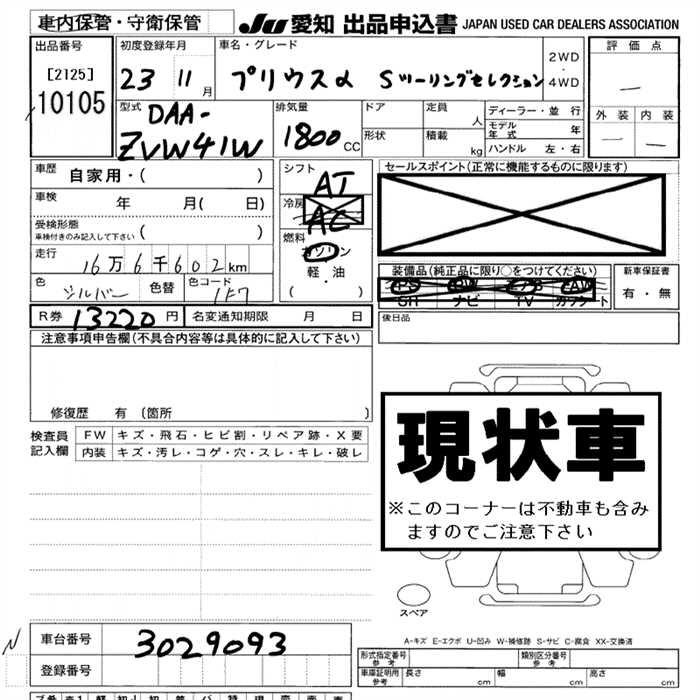 車内保管・守衛保管
JU 愛知 出品申込書 JAPAN USED CAR DEALERS ASSOCIATION
出品番号
[2125]
10105
初度登録年月
23 11月
車名・グレード
プリウスα Sツーリングセレクション
2WD
・
4WD
評価点
—
外装 内装
— —
型式
DAA-
ZVW41W
排気量
1800cc
ドア
形状
定員 人
積載 kg
ディーラー・並行
モデル年式 年
ハンドル 左・右
車歴
自家用・( )
車検
年 月( 日)
受検形態
車検付きのみ記入して下さい
( )
走行
16万6千602km
色
シルバー
色替
色コード
1F7
シフト
AT
冷房
AC
燃料
ガソリン
軽・油
( ・ )
セールスポイント(正常に機能するものに限ります)
装備品(純正品に限り○をつけてください)
PS PW
SR ナビ TV カワシート
新車保証書
有・無
後日品
R券 13220円
名変通知期限 月 日
注意事項申告欄(不具合内容等は具体的に記入して下さい)
修復歴 有(箇所 )
検査員
記入欄
FW キズ・飛石・ヒビ割・リペア跡・X要
内装 キズ・汚レ・コゲ・穴・スレ・キレ・破レ
現状車
※このコーナーは不動車も含み
ますのでご注意下さい
スペア
A-キズ E-エクボ U-凹み W-補修跡 S-サビ C-腐食 XX-交換済
N
車台番号
3029093
登録番号
形式指定番号
参考
類別区分番号
参考
車庫証明用
参考
長さ cm
幅 cm
高さ cm